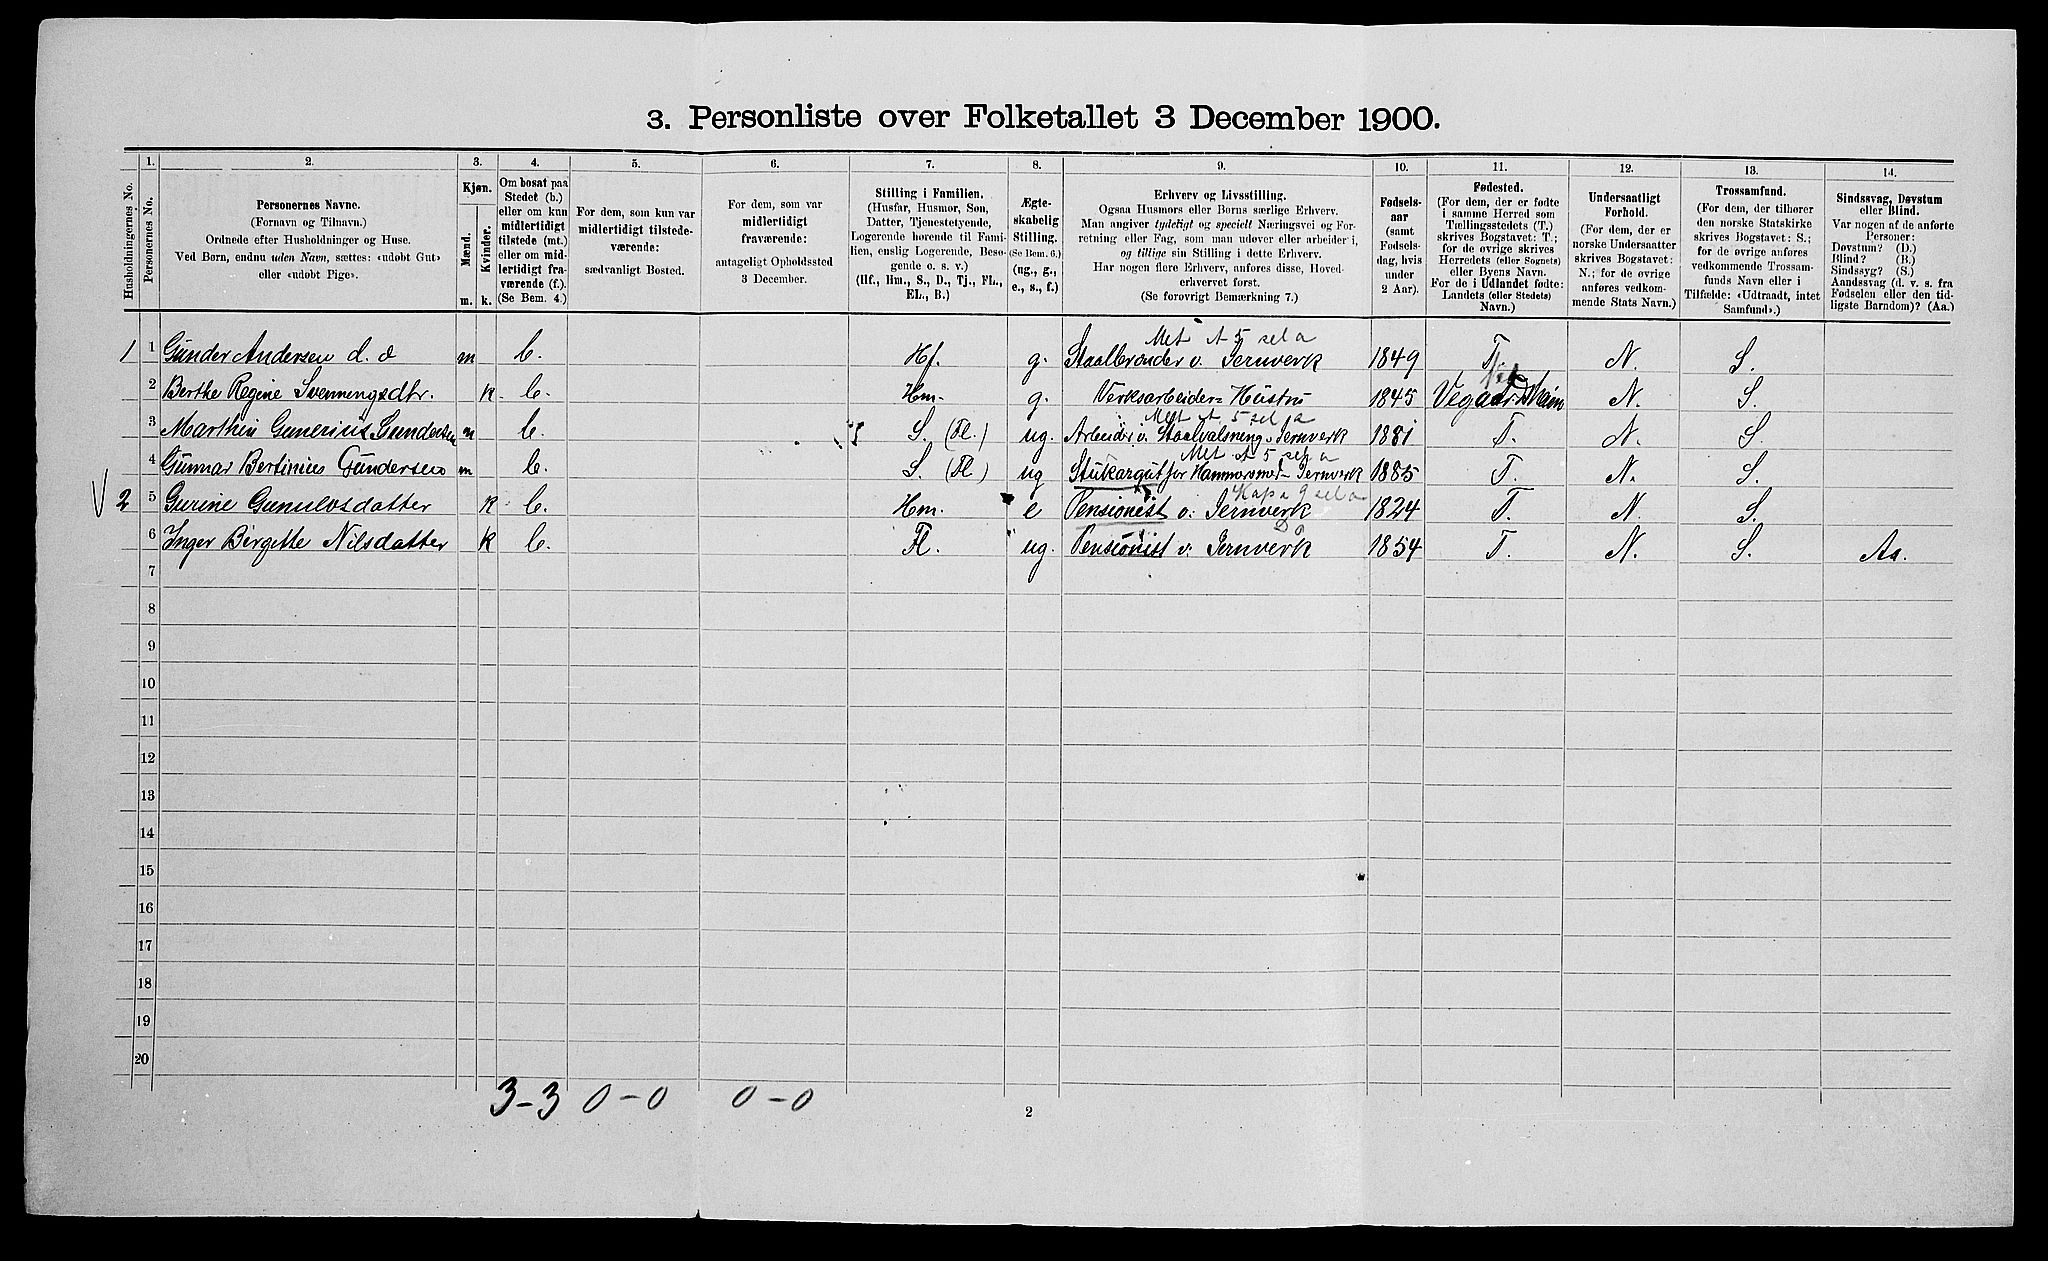 3. Personliste over Folketallet 3 December 1900.
Husholdningernes No.
1.
Personernes No.
2.
Personernes Navne.
(Fornavn og Tilnavn.)
Ordnede efter Husholdninger og Huse.
Ved Børn, endnu uden Navn, sættes: «udøbt Gut»
eller «udøbt Pige».
3.
Kjøn.
Mænd.
m.
Kvinder.
k.
4.
Om bosat paa
Stedet (b.)
eller om kun
midlertidigt
tilstede (mt.)
eller om mid-
lertidigt fra-
værende (f.).
(Se Bem. 4.)
5.
For dem, som kun var
midlertidigt tilstede-
værende:
sædvanligt Bosted.
6.
For dem, som var
midlertidigt
fraværende:
antageligt Opholdssted
3 December.
7.
Stilling i Familien.
(Husfar, Husmor, Søn,
Datter, Tjenestetyende,
Logerende hørende til Fami-
lien, enslig Logerende, Besø-
gende o. s. v.)
(Hf., Hm., S., D., Tj., FL.,
EL., B.)
8.
Ægte-
skabelig
Stilling.
(Se Bem. 6.)
(ug., g.,
e., s., f.)
9.
Erhverv og Livsstilling.
Ogsaa Husmors eller Børns særlige Erhverv.
Man angiver tydeligt og specielt Næringsvei og For-
retning eller Fag, som man udøver eller arbeider i,
og tillige sin Stilling i dette Erhverv.
Har nogen flere Erhverv, anføres disse, Hoved-
erhvervet først.
(Se forøvrigt Bemærkning 7.)
10.
Fødsels-
aar
(samt
Fødsels-
dag, hvis
under
2 Aar).
11.
Fødested.
(For dem, der er fødte
i samme Herred som
Tællingsstedets (T.)
skrives Bogstavet: T.;
for de øvrige skrives
Herredets (eller Sognets)
eller Byens Navn.
For de i Udlandet fødte:
Landets (eller Stedets)
Navn.)
12.
Undersaatligt
Forhold.
(For dem, der er
norske Undersaatter
skrives Bogstavet:
N.; for de øvrige
anføres vedkom-
mende Stats Navn.)
13.
Trossamfund.
(For dem, der tilhører
den norske Statskirke
skrives Bogstavet: S.;
for de øvrige anføres
vedkommende Trossam-
funds Navn eller i
Tilfælde: «Udtraadt, intet
Samfund».)
14.
Sindssvag, Døvstum
eller Blind.
Var nogen af de anførte
Personer:
Døvstum? (D.)
Blind? (B.)
Sindssyg? (S.)
Aandssvag (d. v. s. fra
Fødselen eller den tid-
ligste Barndom)? (Aa.)
Met A 5 sel a
1 1 Gunder Andersen d. æ m b. Hf. g. Staalbrænder v. Jernverk 1849 T. N. S.
2 Berthe Regine Svenningsdtr. k b. Hm. g. Verksarbeider= Hustru 1845 N. S.
Met A 5 sel a
3 Marthin Gunerius Gundersen m b. S. (Fl.) ug. Arbeider v. Staalvalsning v. Jernverk 1881 T. N. S.
Met A 5 sel a
4 Gunnar Bertinius Gundersen m b. S. (Fl) ug 1885 T. N. S.
Kaps 9 sel a
V 2 5 Gurine Gunulvsdatter k b. Hm. e Pensionist v. Jernverk 1824 T. N. S.
Do
6 Inger Birgitte Nilsdatter k b. Fl. ug. Pensionist v. Jernverk 1854 T. N. S. Aa.
7
8
9
10
11
12
13
14
15
16
17
18
19
20
3-3 0-0 0-0
2